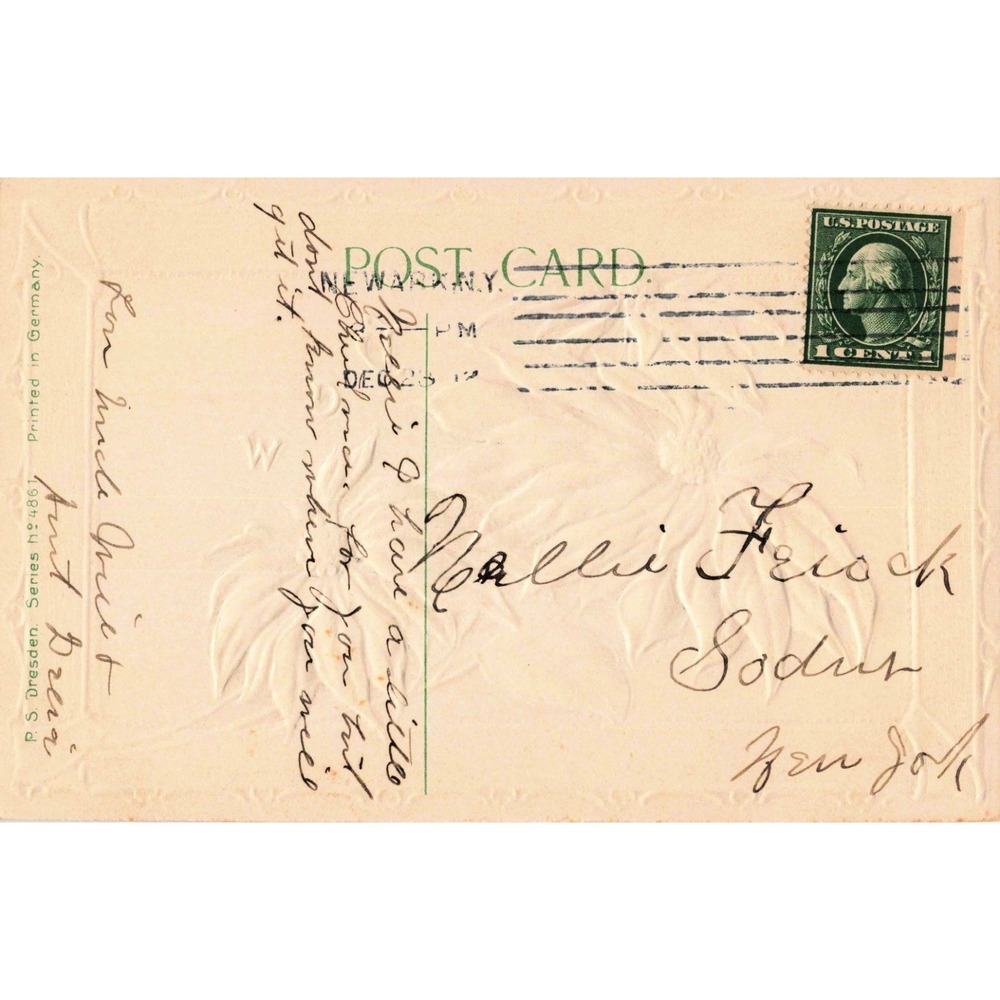 POST CARD.
U.S. POSTAGE
1 CENT 1
NEWARK N.Y.
PM
DEC 23 12
Nellie I have a little
for you but
dont know when you will
git it.
from Uncle
Aunt
Nellie Friock
Sodus
New York
P. S. Dresden. Series No 4861 Printed in Germany.